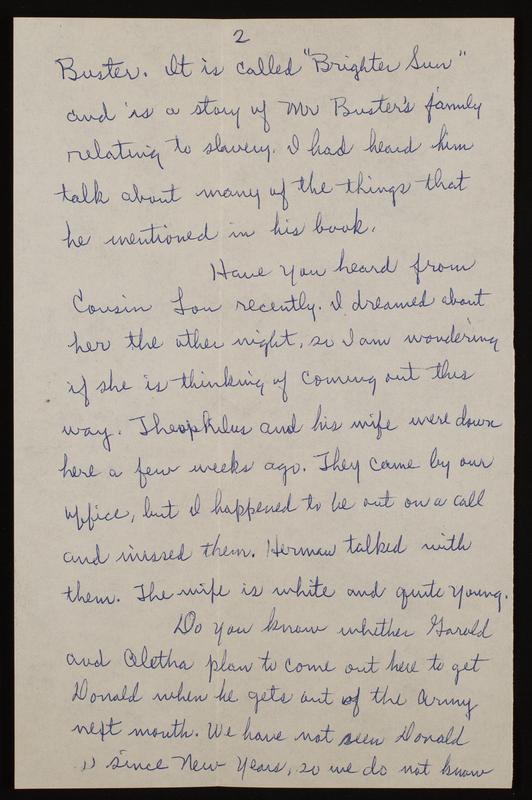 2
Buster. It is called "Brighter Sun"
and is a story of Mr Buster's family
relating to slavery. I had heard him
talk about many of the things that
he mentioned in his book.
Have you heard from
Cousin Lou recently. I dreamed about
her the other night, so I am wondering
if she is thinking of coming out this
way. Theophilus and his wife were down
here a few weeks ago. They came by our
office, but I happened to be out on a call
and missed them. Herman talked with
them. The wife is white and quite young.
Do you know whether Garold
and Oletha plan to come out here to get
Donald when he gets out of the Army
next month. We have not seen Donald
since New Years, so we do not know